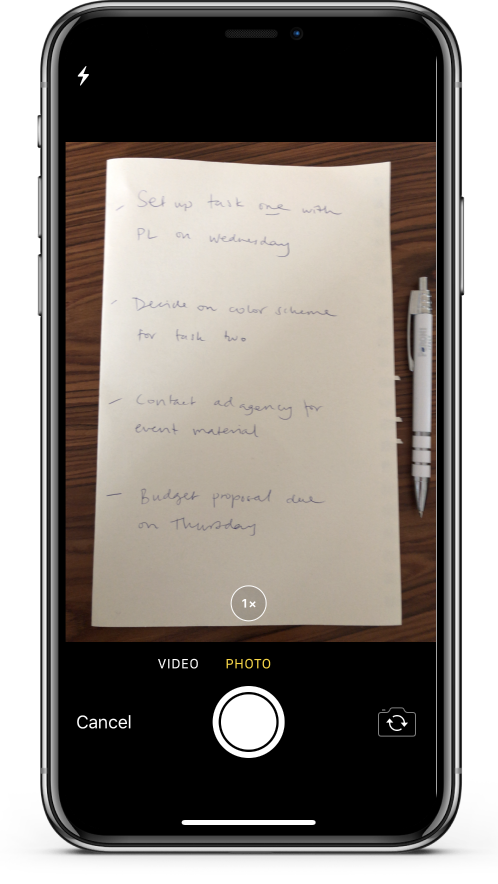 - Set up task one with
PL on wednesday
- Decide on color scheme
for task two
- Contact ad agency for
event material
- Budget proposal due
on Thursday
1×
VIDEO PHOTO
Cancel